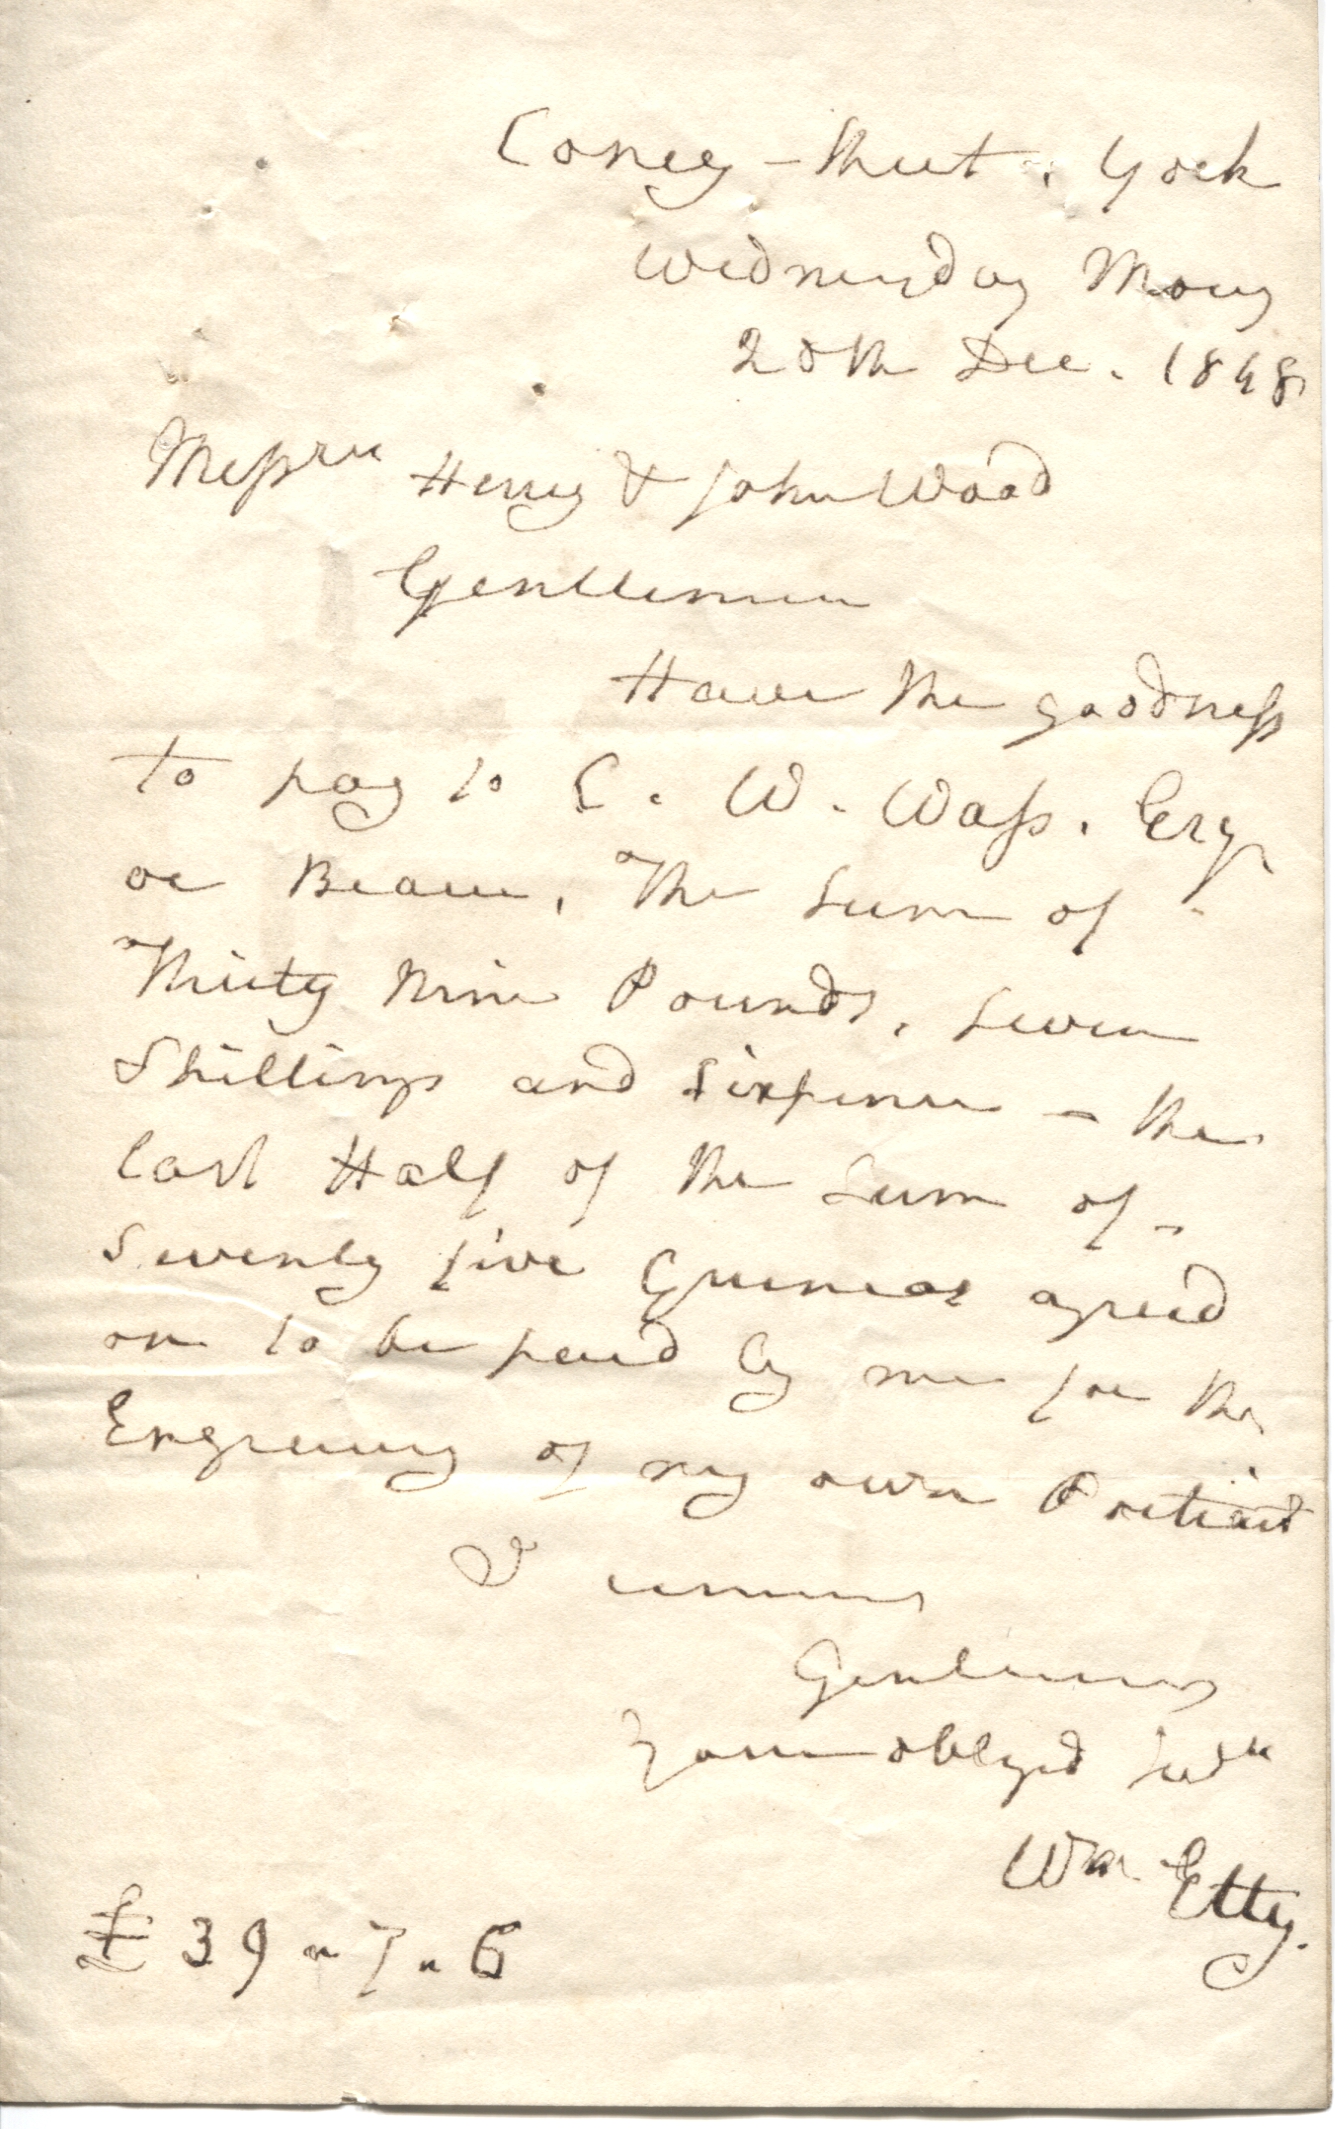 Coney-Street. York
Wednesday Morng
20th Dec. 1848
Messrs Henry & John Wood
Gentlemen
Have the goodness
to pay to C. W. Wass. Esqr
or Bearer, The Sum of -
Thirty Nine Pounds, Seven
Shillings and Sixpence - the
last Half of the Sum of -
Seventy five Guineas agreed
on to be paid by me for the
Engraving of my own Portrait
I remain
Gentlemen
Your oblig'd Servt
Wm Etty.
£ 39 " 7 " 6